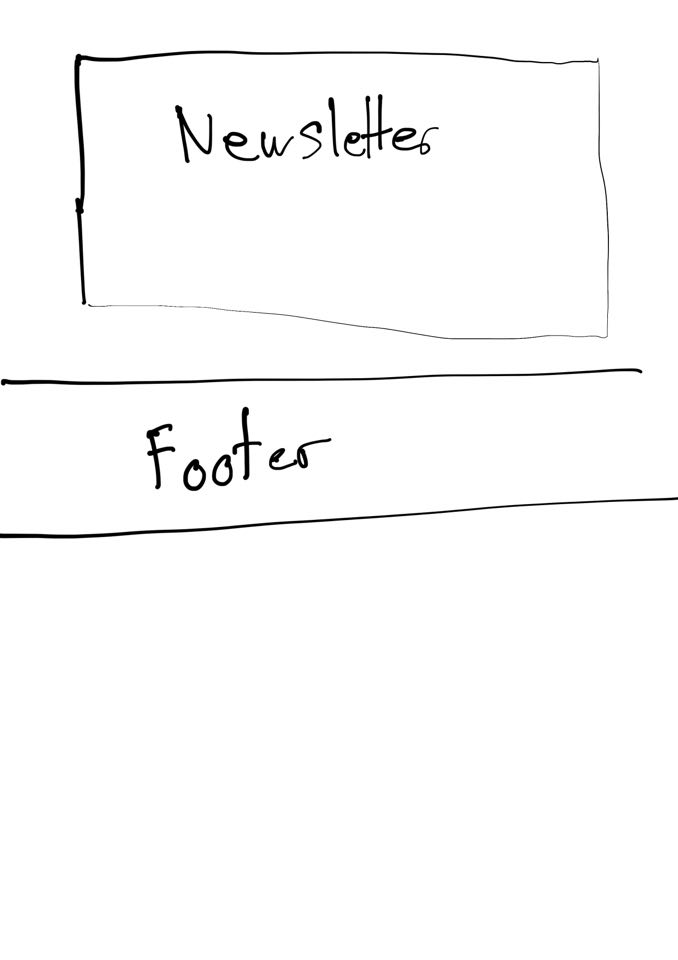 Newsletter
Footer